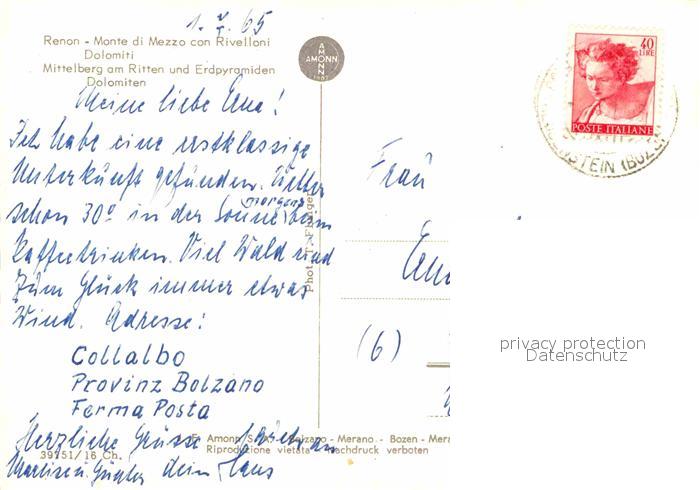 1. V. 65
Renon - Monte di Mezzo con Rivelloni
Dolomiti
Mittelberg am Ritten und Erdpyramiden
Dolomiten
AMONN
AMONN
1802
40
LIRE
POSTE ITALIANE
STEIN (BOZEN
Meine liebe Ema!
Ich habe eine erstklassige
Unterkunft gefunden. Wetter
schon 30° in der Sonne morgens beim
Kaffeetrinken. Viel Wald und
zum Glück immer etwas
Wind. Adresse:
Collalbo
Provinz Bolzano
Ferma Posta
Herzliche Grüsse auch an
Marlise u. dein Hans
Frau
(6)
Photo
F. Amonn S. A. - Bolzano - Merano - Bozen - Mer
Riproduzione vietata - Nachdruck verboten
39751/16 Ch.
privacy protection
Datenschutz